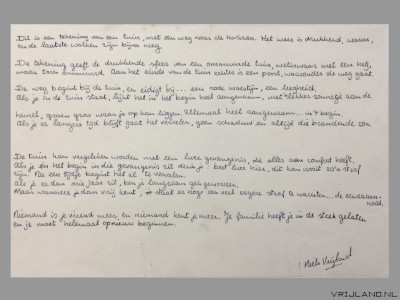 Dit is een tekening van een tuin, met een weg naar de horizon. Het weer is drukkend, warm,
en de laatste wolken zijn bijna weg.
De tekening geeft de drukkende sfeer van een ommuurde tuin, weliswaar met een hek,
maar toch ommuurd. Aan het einde van de tuin echter is een poort, waaronder de weg gaat.
De weg begint bij de tuin, en eidigt bij... een rode woestijn, een leegheid.
Als je in de tuin staat, lijkt het in het begin heel aangenaam, met lekker zonnetje aan de
hemel, groen gras waar je op kan liggen. Allemaal heel aangenaam... in 't begin.
Als je er langer tijd blijft gaat het vervelen, geen schaduw en altijd die brandende zon.
De tuin kan vergeleken worden met een luxe gevangenis, die alles aan comfort heeft,
Als je in het begin in die gevangenis zit denk je: best luxe hier, dit kan nooit zo'n straf
zijn. Na een tijdje begint het al te vervelen.
Als je er dan drie jaar zit, ben je langzaam gek geworden.
Maar wanneer je dan vrij komt, staat er nog een veel ergere straf te wachten... de eenzaam-
heid.
Niemand is je vriend meer, en niemand kent je meer. Je familie heeft je in de steek gelaten
en je moet helemaal opnieuw beginnen.
Niels Vrijland
VRIJLAND.NL